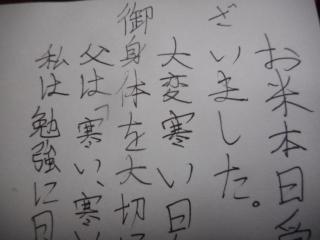 お米本日
ざいました。
大変寒い日
御身体を大切に
父は「寒い、寒い
私は勉強に日